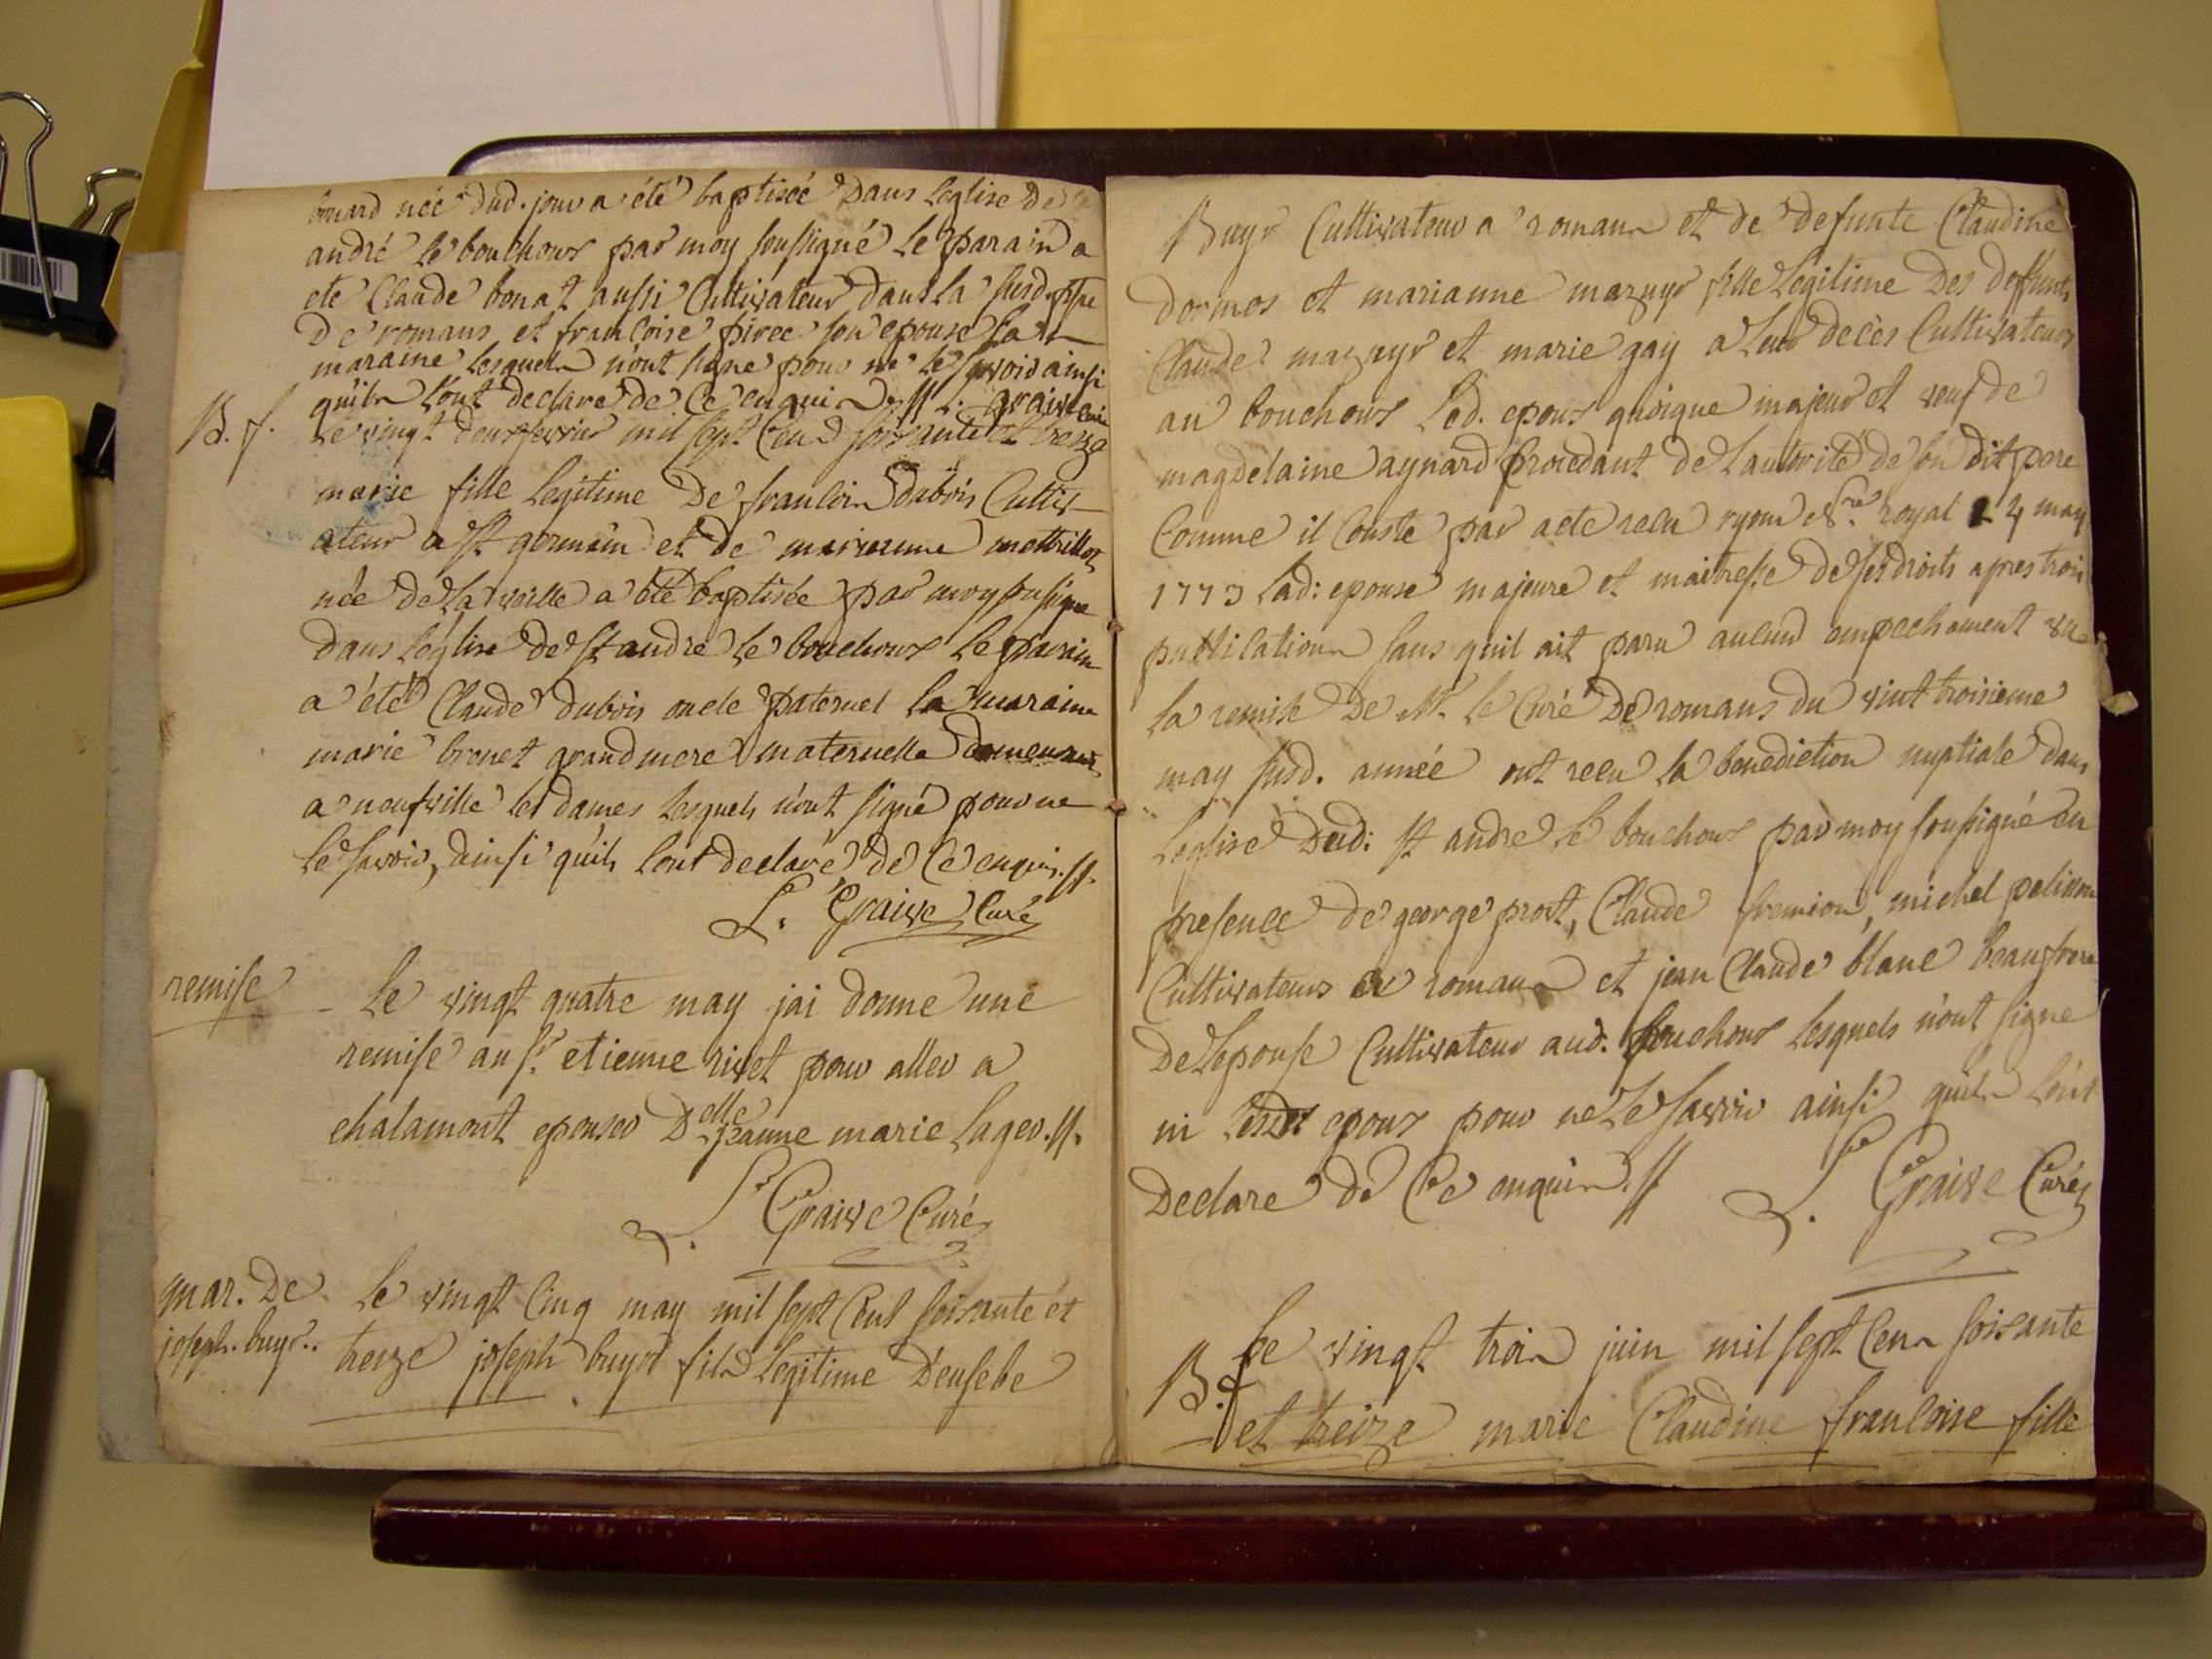 née dud. jour a été baptiseé dans leglise de
andré le bouchoux par moy soussigné le parain a
ete Claude bonat aussi Cultivateur dans la susd. psse
de romans et francoise piree son epouse la
maraine lesquels n'ont signe pour ne le savoir ainsi
quils l'ont declaré de ce enquis // L. graive curé
B. f.
Le vingt deux fevrier mil sept cens soissante et treize
marie fille legitime de francois dubois Cultiv
ateur a st germain et de
née de la veille a été baptisée par moy susigne
dans leglise de st andre le bouchoux le parain
a été Claude dubois oncle paternel la maraine
marie brouet grandmere maternelle
a neufville les dames lesquels n'ont signé pour ne
le savoir, ainsi quils l'ont declaré de ce enquis. //.
L. Graive Curé
remise
Le vingt quatre may jai donne une
remise au sr. etienne rivet pour aller a
chalamont epouser Delle jeanne marie lager. //.
L. Graive Curé
mar. de
joseph. buyr..
Le vingt cinq may mil sept cent soisante et
treize joseph buyr fils legitime d'eusebe
Buyr Cultivateur a romans et de defunte Claudine
dormos et marianne mazuyr fille legitime des deffunts
Claude mazuyr et marie gay a leur decès Cultivateurs
au bouchoux led. epoux quoique majeur et veuf de
magdelaine aynard procedant de l'autorité de son dit pere
Comme il conste par acte recu ryom nre. royal 24 may
1773 lad: epouse majeure et maitresse de ses droits apres trois
publications sans quil ait paru aucun empechement vu
la remise de Mr. le Curé de romans du vint troisieme
may susd. année ont recu la benediction nuptiale dans
leglise dud: st andre le bouchoux par moy soussigné en
presence de george prost, Claude fremion, michel pelisson
Cultivateurs a romans et jean Claude blanc beaufrere
de lepouse Cultivateur aud. bouchoux lesquels n'ont signe
ni epoux pour ne le savoir ainsi quils l'ont
declare de Ce enquis. // L. Graive Curé
B. f
Le vingt trois juin mil sept cens soisante
et treize marie Claudine francoise fille